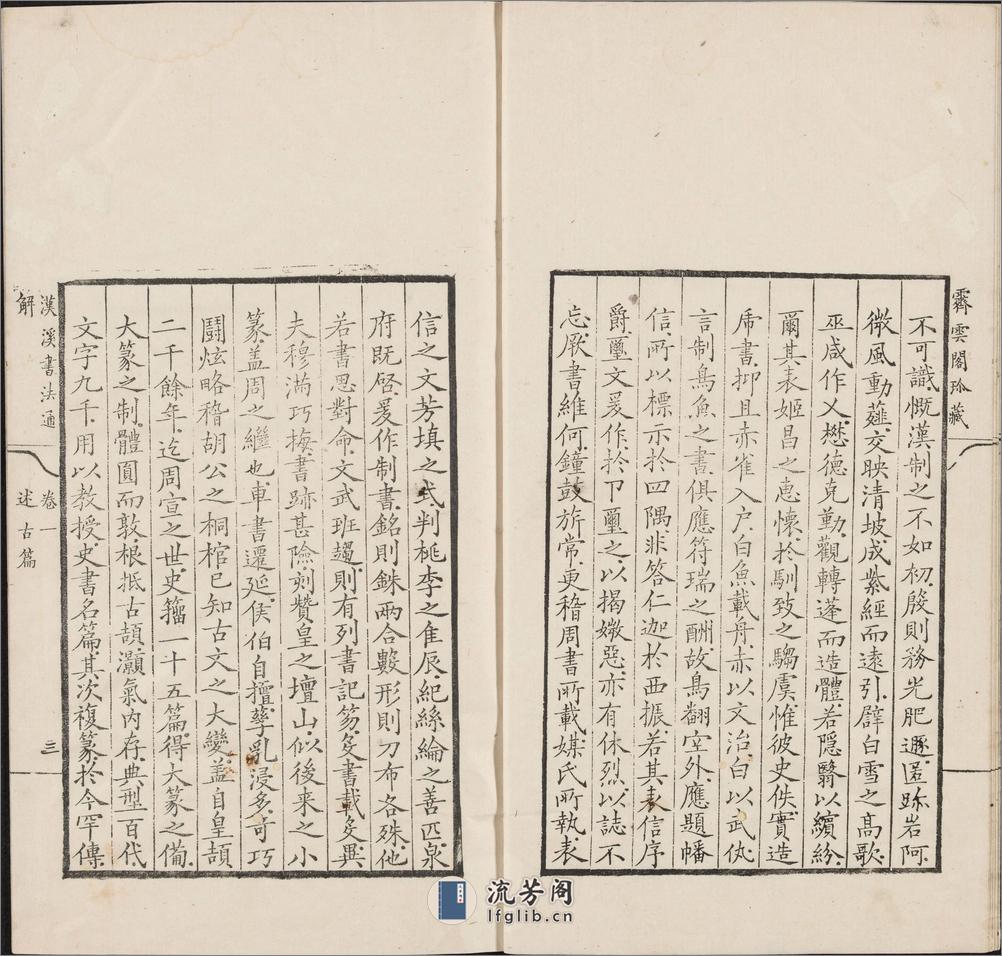 霽雲閣珍藏
不可識慨漢制之不如初殷則務光肥遯匿跡岩阿
微風動薤交映清坡成紫經而遠引辟白雪之高歌
巫咸作乂懋德克勤觀轉蓬而造體若隱翳以繽紛
爾其表姬昌之惠懷於馴致之騶虞惟彼史佚實造
虎書抑且赤雀入户白魚載舟赤以文治白以武仇
言制鳥魚之書俱應符瑞之酬故鳥翻空外應題幡
信所以標示於四隅非答仁迦於西振若其表信序
爵璽文爰作於卩璽之以揭媺惡亦有休烈以誌不
忘厥書維何鐘鼓旂常更稽周書所載媒氏所執表
信之文芳填之式判桃李之隹辰紀絲綸之善匹泉
府既啓爰作制書銘則銖兩合數形則刀布各殊他
若書思對命文武班趨則有列書記笏殳書載殳異
夫穆滿巧梅書跡甚險刻贊皇之壇山似後来之小
篆盖周之繼也車書遷延侯伯自擅孳乳浸多竒巧
鬪炫略稽胡公之桐棺已知古文之大變盖自皇頡
二千餘年迄周宣之世史籀一十五篇得大篆之備
大篆之制體圓而敦根抵古頡灝氣内存典型百代
文字九千用以教授史書名篇其次複篆於今罕傳
漢溪書法通
解
卷一
述古篇
三
流芳阁
lfglib.cn